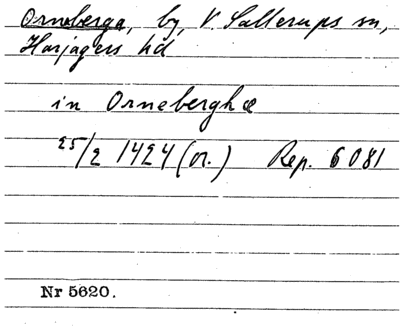 Orneberga, by, V Sallerups sn,
Harjagers hd
in Orneberghæ
25/2 1424 (or.) Rep. 6081
Nr 5620.